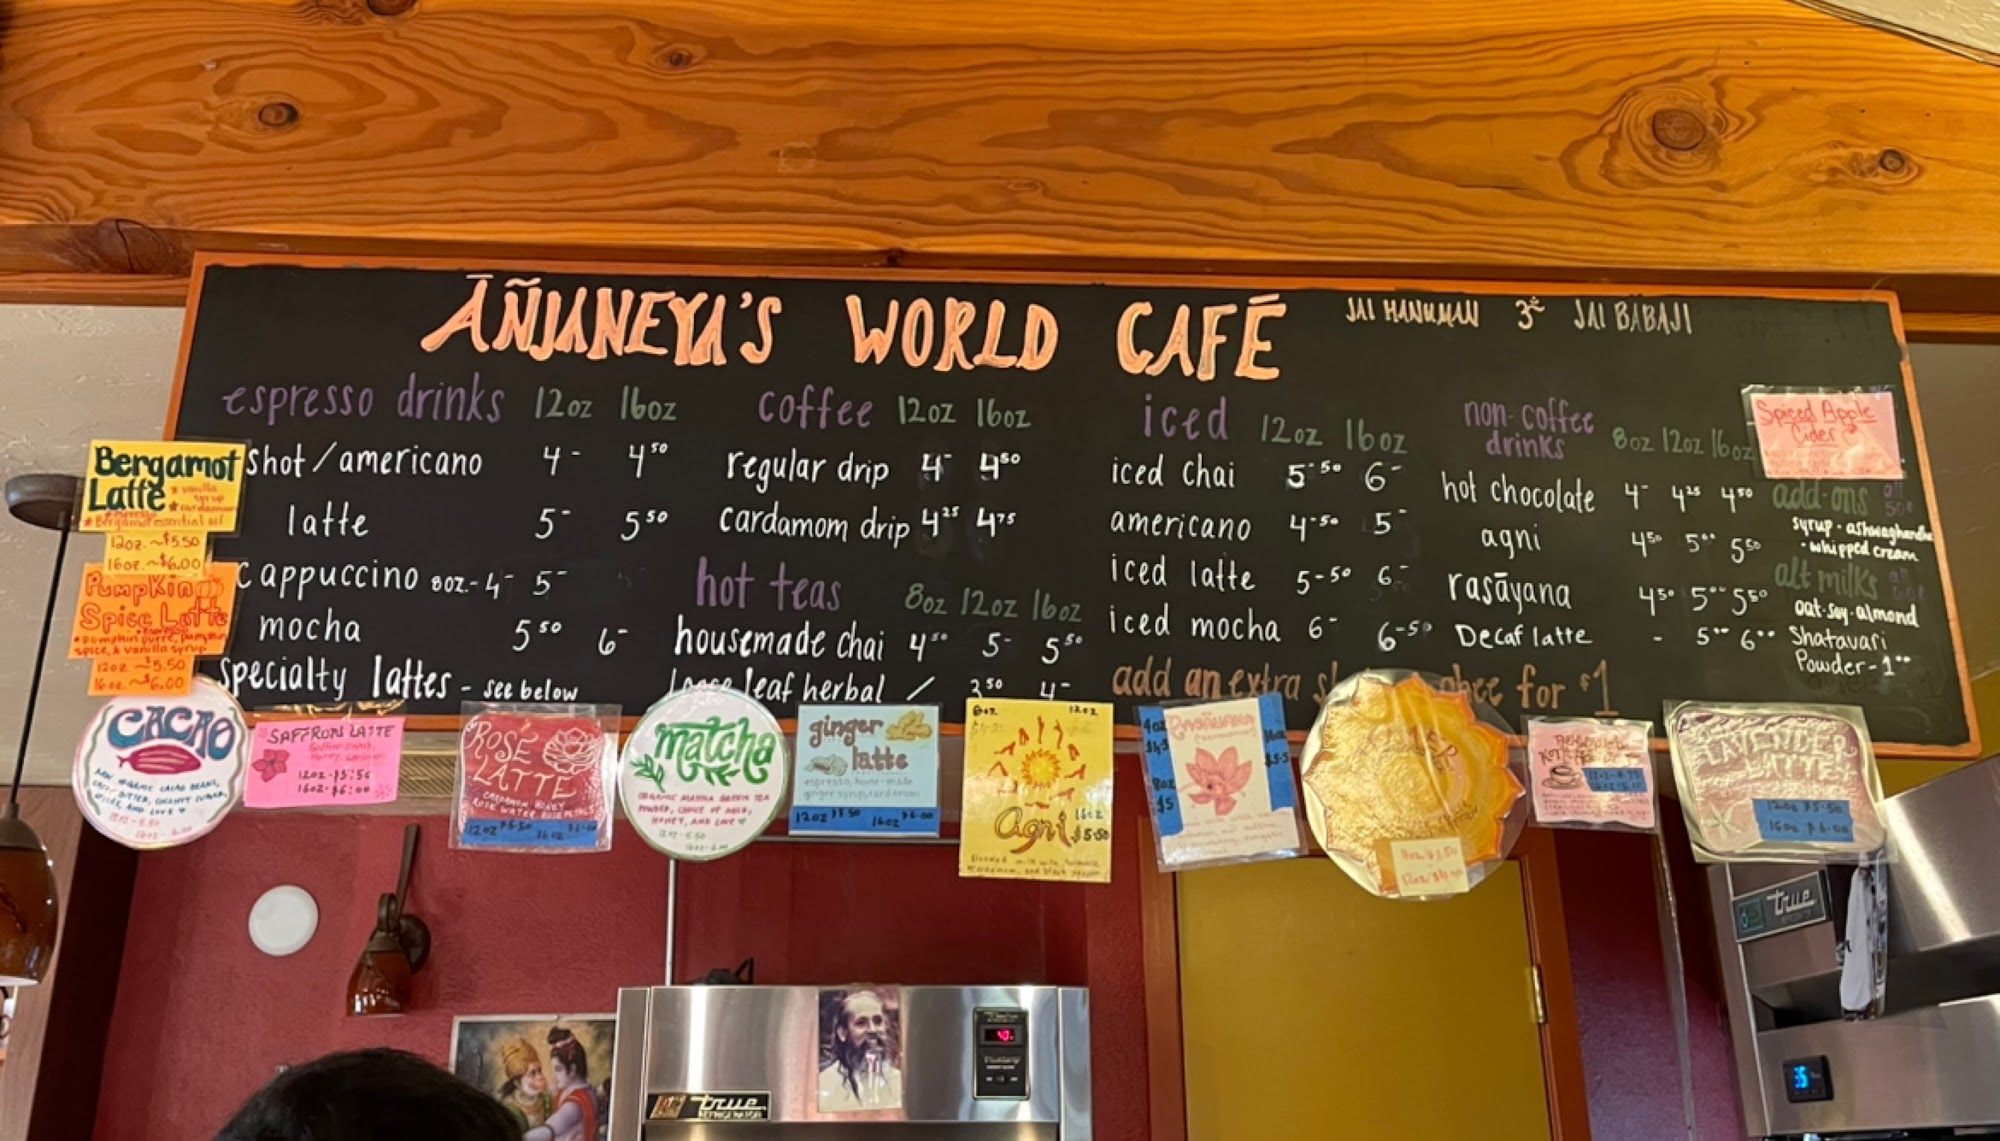 ĀÑJANEYA'S WORLD CAFÉ
JAI HANUMAN ॐ JAI BABAJI
espresso drinks 12oz 16oz
shot/americano 4- 4⁵⁰
latte 5- 5⁵⁰
cappuccino 8oz.-4- 5-
mocha 5⁵⁰ 6-
specialty lattes - see below
coffee 12oz 16oz
regular drip 4- 4⁵⁰
cardamom drip 4²⁵ 4⁷⁵
hot teas 8oz 12oz 16oz
housemade chai 4⁵⁰ 5- 5⁵⁰
loose leaf herbal / 3⁵⁰ 4-
iced 12oz 16oz
iced chai 5-⁵⁰ 6-
americano 4-⁵⁰ 5-
iced latte 5-⁵⁰ 6-
iced mocha 6- 6-⁵⁰
add an extra for $1
non-coffee
drinks 8oz 12oz 16oz
hot chocolate 4- 4²⁵ 4⁵⁰
agni 4⁵⁰ 5⁰⁰ 5⁵⁰
rasāyana 4⁵⁰ 5⁰⁰ 5⁵⁰
Decaf latte - 5⁰⁰ 6⁰⁰
Spiced Apple
Cider
add-ons all
50¢
syrup · ashwagandha
· whipped cream
alt milks all
oat·soy·almond
Shatavari
Powder-1⁰⁰
Bergamot
Latte
* vanilla
syrup
* cardamom
* espresso
* Bergamot essential oil
12oz. ~$5.50
16oz. ~$6.00
Pumpkin
Spice Latte
* espresso
* pumpkin puree, pumpkin
spice, & vanilla syrup
12oz ~$5.50
16oz. ~$6.00
CACAO
RAW ORGANIC CACAO BEANS,
CACAO BUTTER, COCONUT SUGAR,
SPICES, AND
LOVE
12oz-5.50
16oz-6.00
SAFFRON LATTE
12oz-$5.50
16oz-$6.00
ROSÉ
LATTE
CARDAMOM HONEY
ROSE WATER ROSE PETALS
12oz $5.50 16oz $6.00
matcha
ORGANIC MATCHA GREEN TEA
POWDER, CHOICE OF MILK,
HONEY, AND LOVE
12oz-5.50
16oz-6.00
ginger
latte
espresso, house-made
ginger syrup, cardamom
12oz $5.50 16oz $6.00
8oz 12oz
agni 16oz
$5.50
Steamed milk with turmeric,
cardamom, and black pepper
4oz
8oz
$5
16oz
$5.5
8oz $3.50
LAVENDER
LATTE
12oz $5.50
16oz $6.00
true
REFRIGERATION
true